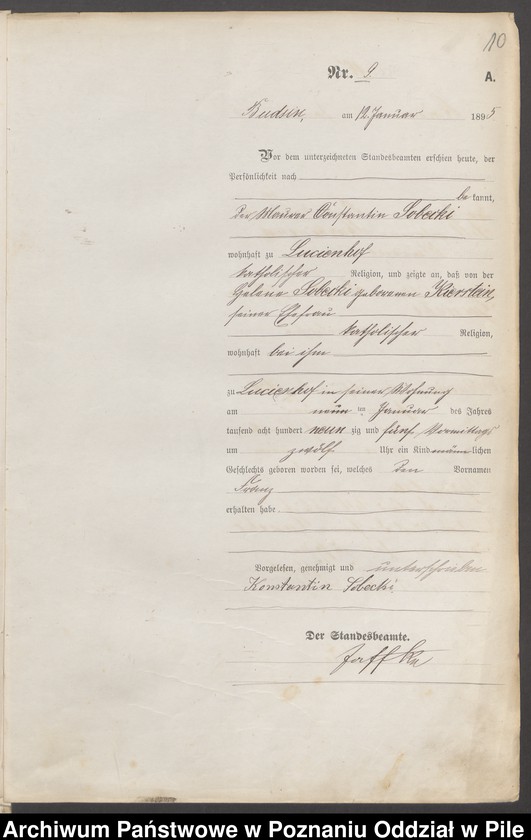 10
Nr. 9.
A.
Budsin, am 12. Januar 1895
Vor dem unterzeichneten Standesbeamten erschien heute, der
Persönlichkeit nach
be kannt,
der Maurer Constantin Sobecki
wohnhaft zu Lucienhof
katholischer Religion, und zeigte an, daß von der
Helene Sobecki geborenen Kierstein,
seiner Ehefrau
katholischer Religion,
wohnhaft bei ihm
zu Lucienhof in seiner Wohnung
am neunten Januar des Jahres
tausend acht hundert neun zig und fünf Vormittags
um zwölf Uhr ein Kind männ lichen
Geschlechts geboren worden sei, welches den Vornamen
Franz
erhalten habe
Vorgelesen, genehmigt und unterschrieben
Konstantin Sobecki
Der Standesbeamte.
Jaffke
Archiwum Państwowe w Poznaniu Oddział w Pile